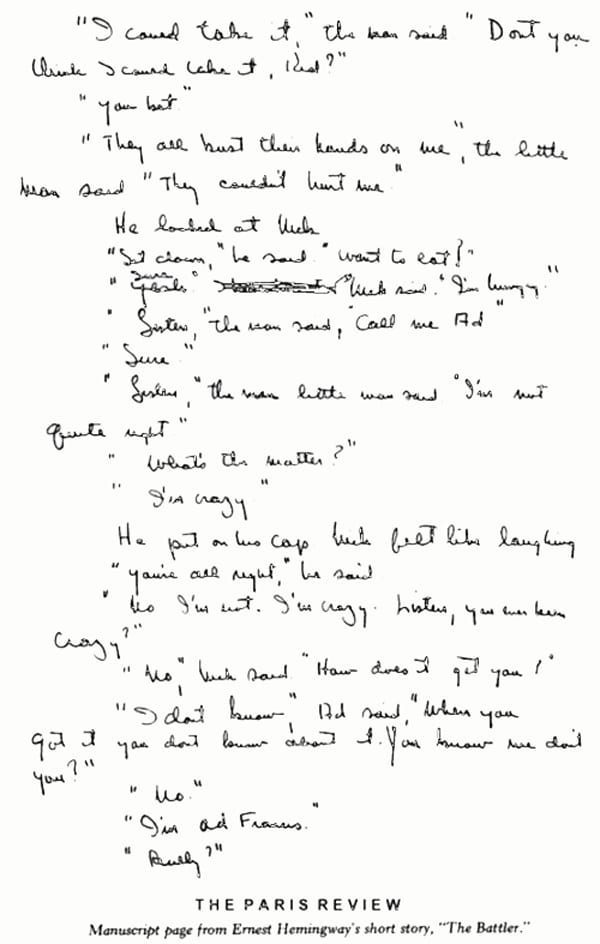 "I could take it," the man said "Dont you
think I could take it, Kid?"
"You bet"
"They all bust their hands on me", the little
man said "They couldn't hurt me."
He looked at Nick
"Sit down," he said. "Want to eat?"
"Sure" Nick said. "I'm hungry."
"Listen," the man said, "Call me Ad"
"Sure."
"Listen," the man little man said "I'm not
quite right."
"What's the matter?"
"I'm crazy"
He put on his cap Nick felt like laughing
"You're all right," he said
"No I'm not. I'm crazy. Listen, you ever been
crazy?"
"No," Nick said. "How does it get you?"
"I dont know", Ad said, "When you
got it you dont know about it. You know me dont
you?"
"No."
"I'm ad Francis."
"Really?"
THE PARIS REVIEW
Manuscript page from Ernest Hemingway's short story, "The Battler."